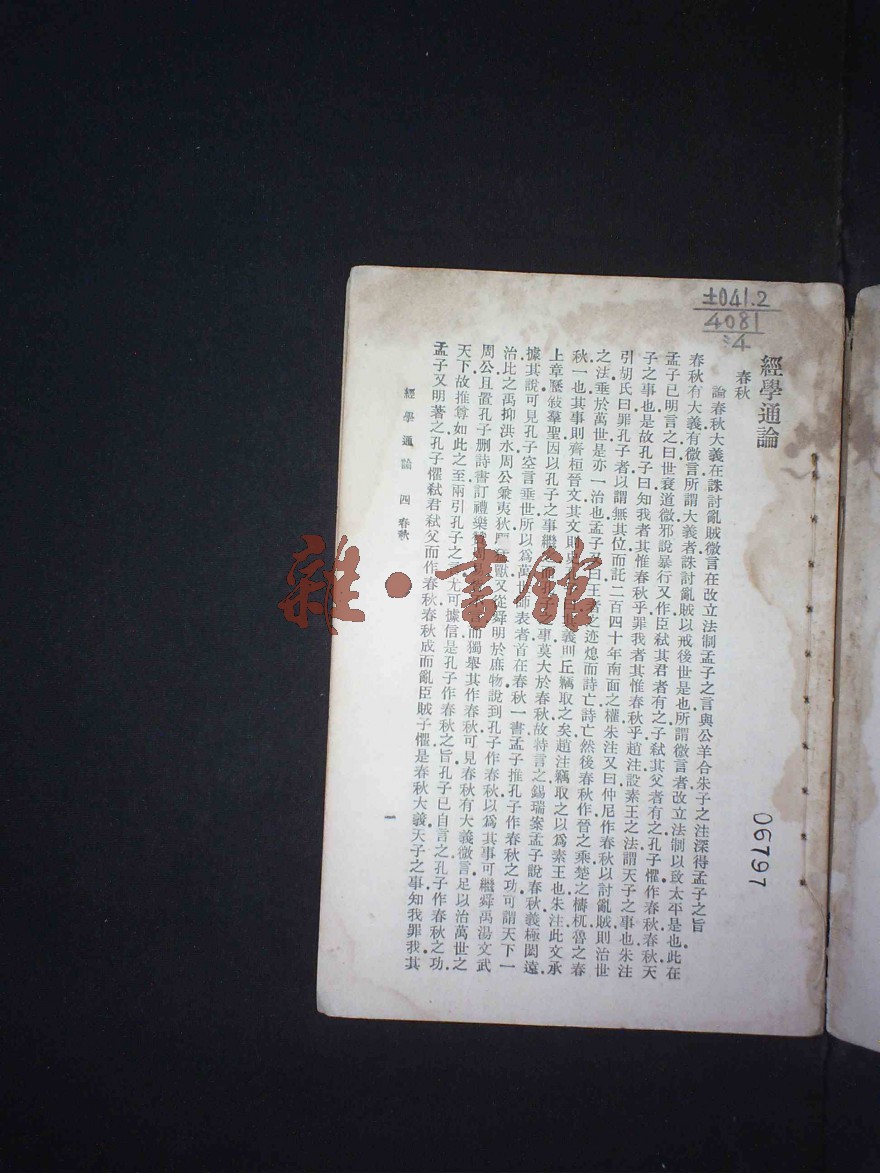 ±041.2
4081
:4
經學通論
春秋
論春秋大義在誅討亂賊微言在改立法制孟子之言與公羊合朱子之注深得孟子之旨
春秋有大義有微言所謂大義者誅討亂賊以戒後世是也所謂微言者改立法制以致太平是也此在
孟子已明言之曰世衰道微邪說暴行又作臣弒其君者有之子弒其父者有之孔子懼作春秋春秋天
子之事也是故孔子曰知我者其惟春秋乎罪我者其惟春秋乎趙注設素王之法謂天子之事也朱注
引胡氏曰罪孔子者以謂無其位而託二百四十年南面之權朱注又曰仲尼作春秋以討亂賊則治世
之法垂於萬世是亦一治也孟子又曰王者之迹熄而詩亡詩亡然後春秋作晉之乘楚之檮杌魯之春
秋一也其事則齊桓晉文其文則史義則丘竊取之矣趙注竊取之以爲素王也朱注此文承
上章歷敍羣聖因以孔子之事繼之事莫大於春秋故特言之錫瑞案孟子說春秋義極閎遠
據其說可見孔子空言垂世所以爲萬世師表者首在春秋一書孟子推孔子作春秋之功可謂天下一
治比之禹抑洪水周公兼夷狄驅猛獸又從舜明於庶物說到孔子作春秋以爲其事可繼舜禹湯文武
周公且置孔子删詩書訂禮樂而獨舉其作春秋可見春秋有大義微言足以治萬世之
天下故推尊如此之至兩引孔子之言尤可據信是孔子作春秋之旨孔子已自言之孔子作春秋之功
孟子又明著之孔子懼弒君弒父而作春秋春秋成而亂臣賊子懼是春秋大義天子之事知我罪我其
經學通論 四 春秋
一
06797
雜·書館